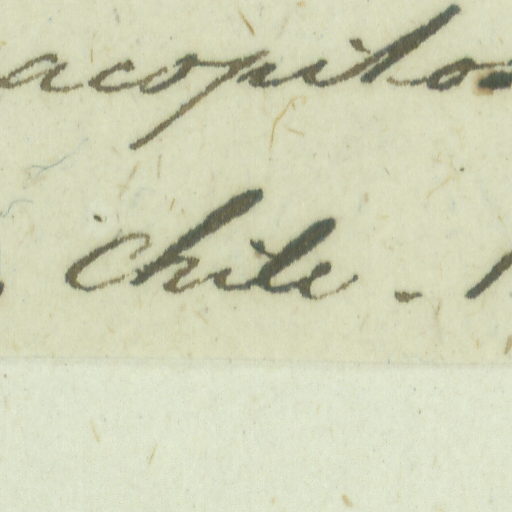 acopilo
Chile -